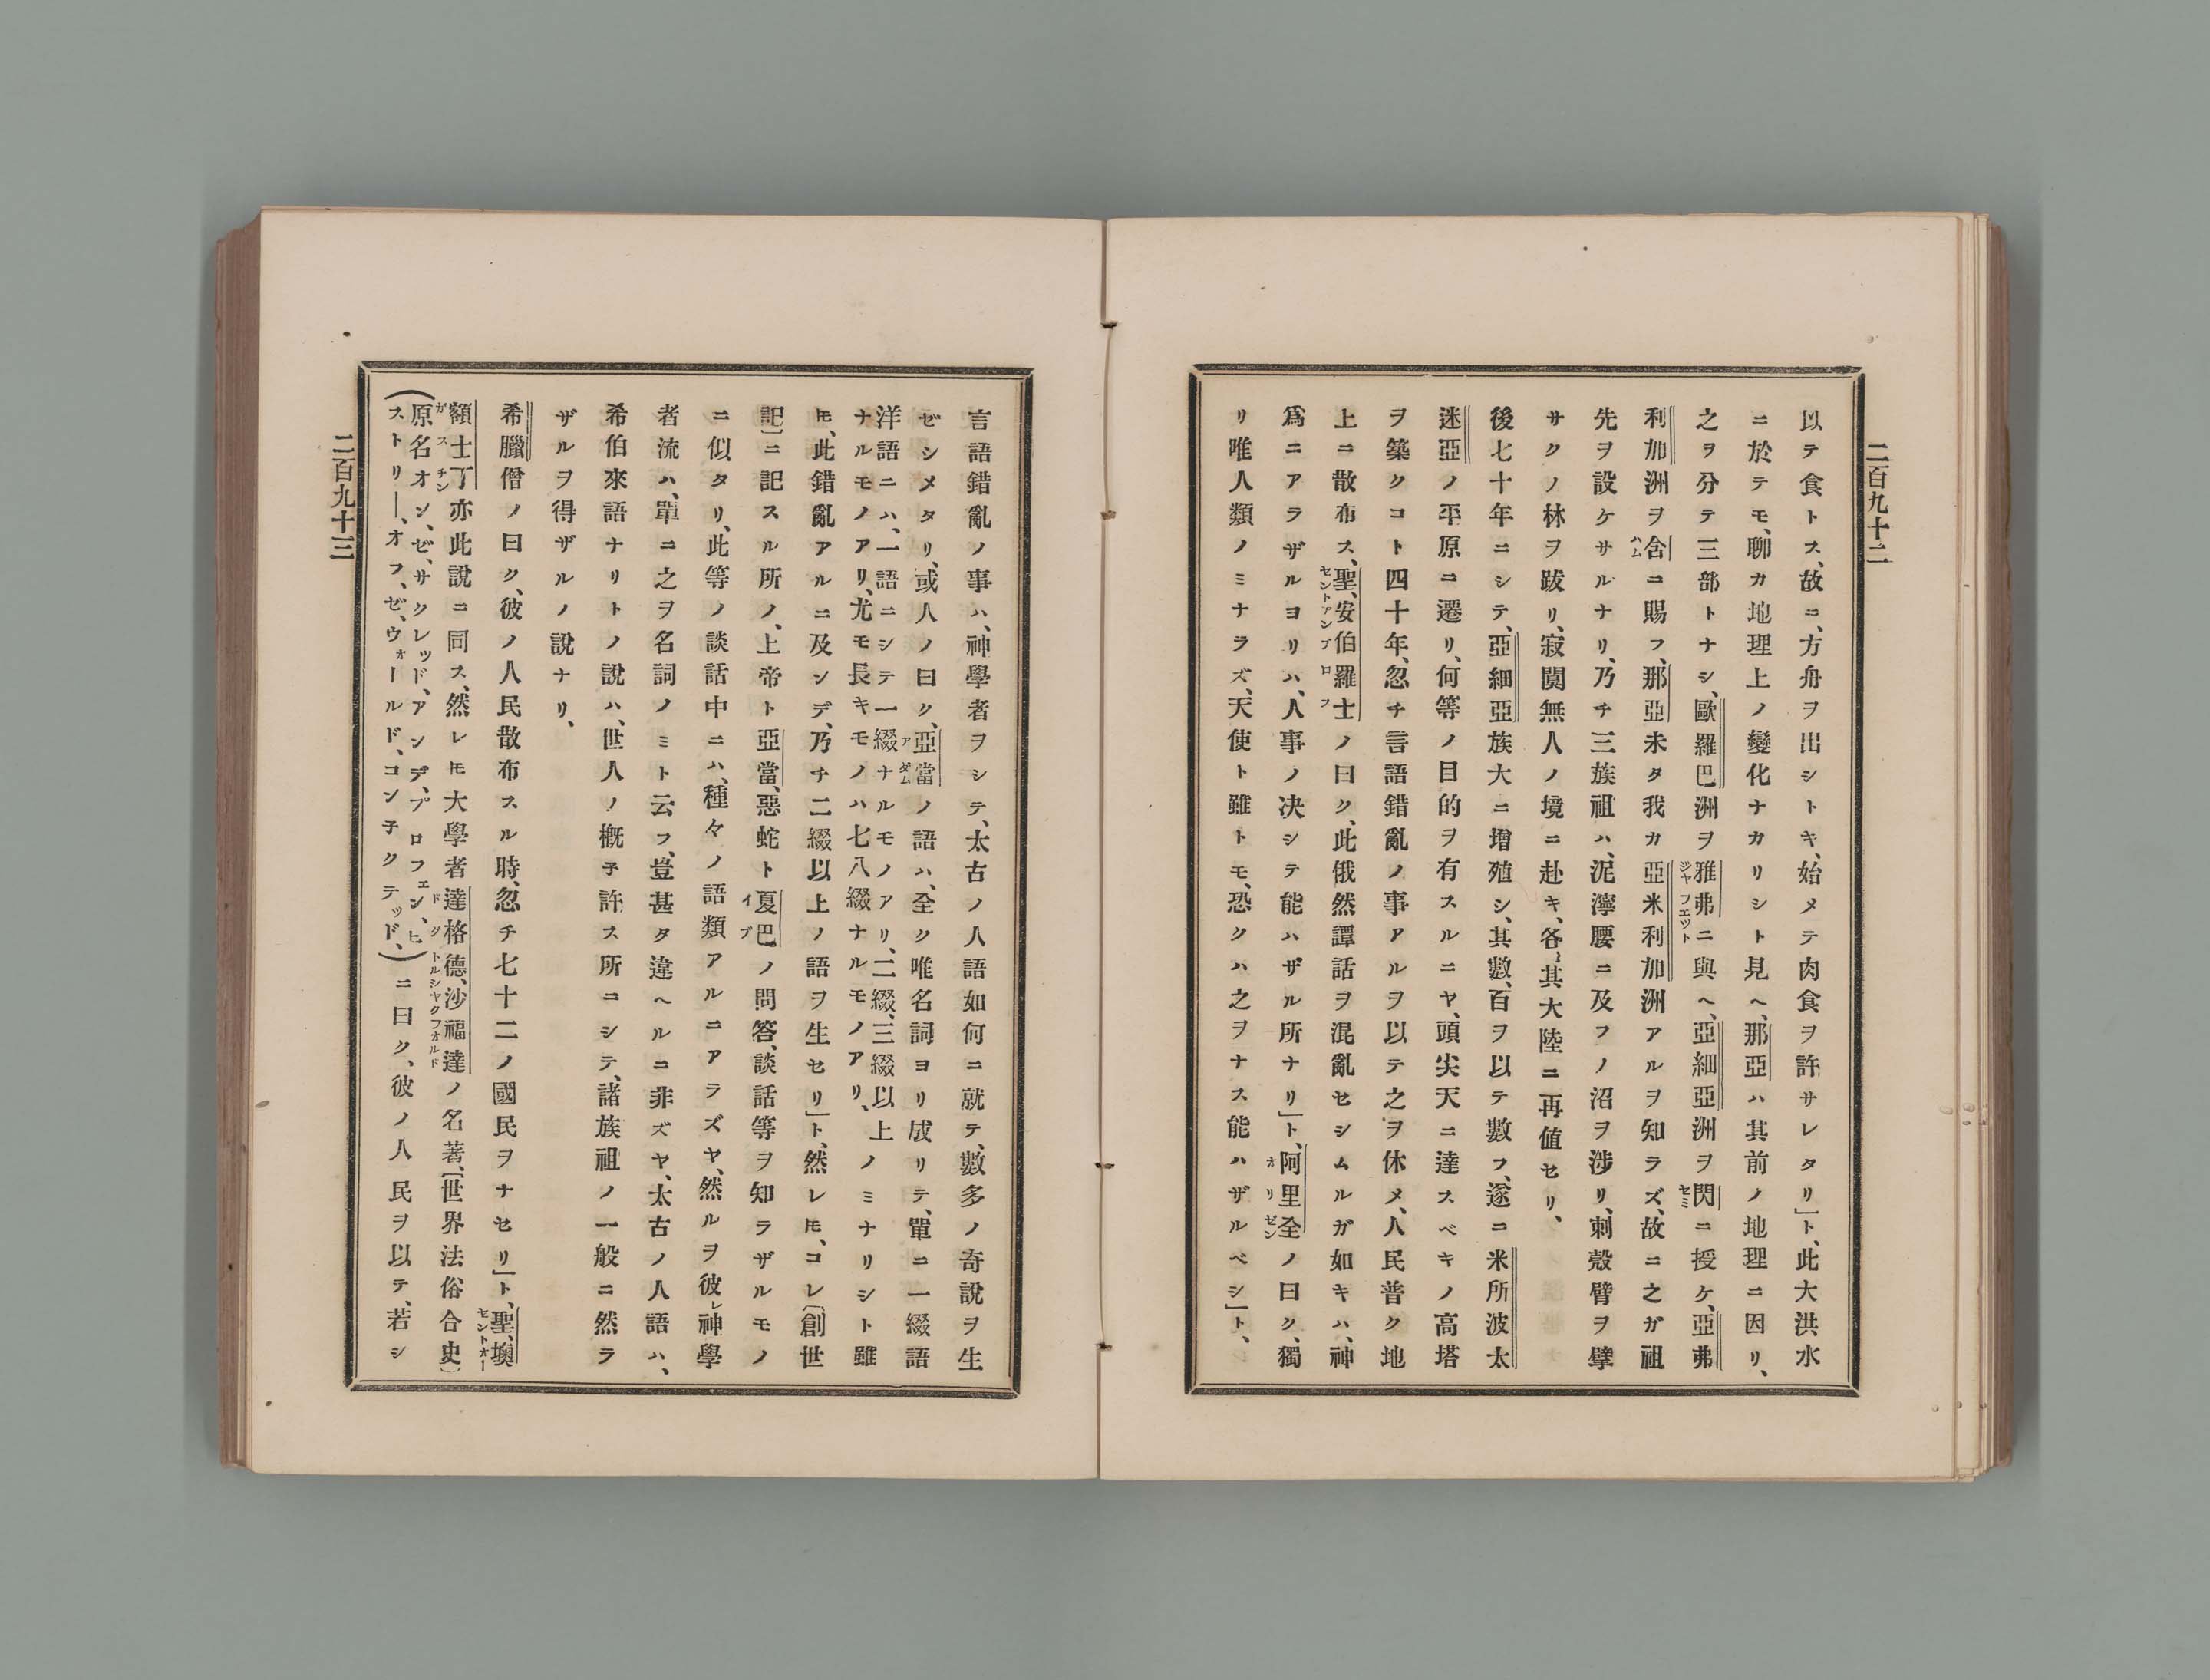 二百九十二
以テ食トス、故ニ、方舟ヲ出シトキ、始メテ肉食ヲ許サレタリ」ト、此大洪水
ニ於テモ、聊カ地理上ノ變化ナカリシト見ヘ、那亞ハ其前ノ地理ニ因リ、
之ヲ分テ三部トナシ、歐羅巴洲ヲ雅弗ニ與ヘ、亞細亞洲ヲ閃ニ授ケ、亞弗
ジヤフエツト
セミ
利加洲ヲ含ニ賜フ、那亞未タ我カ亞米利加洲アルヲ知ラズ、故ニ之ガ祖
ハム
先ヲ設ケサルナリ、乃チ三族祖ハ、泥濘腰ニ及フノ沼ヲ渉リ、刺殼臂ヲ擘
サクノ林ヲ跋リ、寂闃無人ノ境ニ赴キ、各〻其大陸ニ再値セリ、
後七十年ニシテ、亞細亞族大ニ增殖シ、其數、百ヲ以テ數フ、遂ニ米所波太
迷亞ノ平原ニ遷リ、何等ノ目的ヲ有スルニヤ、頭尖天ニ達スベキノ高塔
ヲ築クコト四十年、忽チ言語錯亂ノ事アルヲ以テ之ヲ休メ、人民普ク地
上ニ散布ス、聖、安伯羅士ノ曰ク、此俄然譚話ヲ混亂セシムルガ如キハ、神
セントアンブロフ
爲ニアラザルヨリハ、人事ノ决シテ能ハザル所ナリ」ト、阿里全ノ曰ク、獨
オリゼン
リ唯人類ノミナラズ、天使ト雖トモ、恐クハ之ヲナス能ハザルベシ」ト、
言語錯亂ノ事ハ、神學者ヲシテ、太古ノ人語如何ニ就テ、數多ノ奇說ヲ生
ゼシメタリ、或人ノ曰ク、亞當ノ語ハ、全ク唯名詞ヨリ成リテ、單ニ一綴語
アダム
洋語ニハ、一語ニシテ一綴ナルモノアリ、二綴、三綴以上
ナルモノアリ、尤モ長キモノハ七八綴ナルモノアリ、
ノミナリシト雖
𪜈、此錯亂アルニ及ンデ、乃チ二綴以上ノ語ヲ生セリ」ト、然レ𪜈、コレ〔創世
記〕ニ記スル所ノ、上帝ト亞當、惡蛇ト夏巴ノ問答、談話等ヲ知ラザルモノ
イブ
ニ似タリ、此等ノ談話中ニハ、種々ノ語類アルニアラズヤ、然ルヲ彼レ神學
者流ハ、單ニ之ヲ名詞ノミト云フ、豈甚タ違ヘルニ非ズヤ、太古ノ人語ハ、
希伯來語ナリトノ說ハ、世人ノ槪子許ス所ニシテ、諸族祖ノ一般ニ然ラ
ザルヲ得ザルノ說ナリ、
希臘僧ノ曰ク、彼ノ人民散布スル時、忽チ七十二ノ國民ヲナセリ」ト、聖、墺
セントオー
額士丁亦此說ニ同ス、然レ𪜈大學者達格德、沙福達ノ名著、〔世界法俗合史〕
ガスチン
ドクトルシヤクフオルド
(原名オン、ゼ、サクレッド、アンデ、プロフェン、ヒ
ストリー、オフ、ゼ、ウォールド、コン子クテッド、)
ニ曰ク、彼ノ人民ヲ以テ、若シ
二百九十三